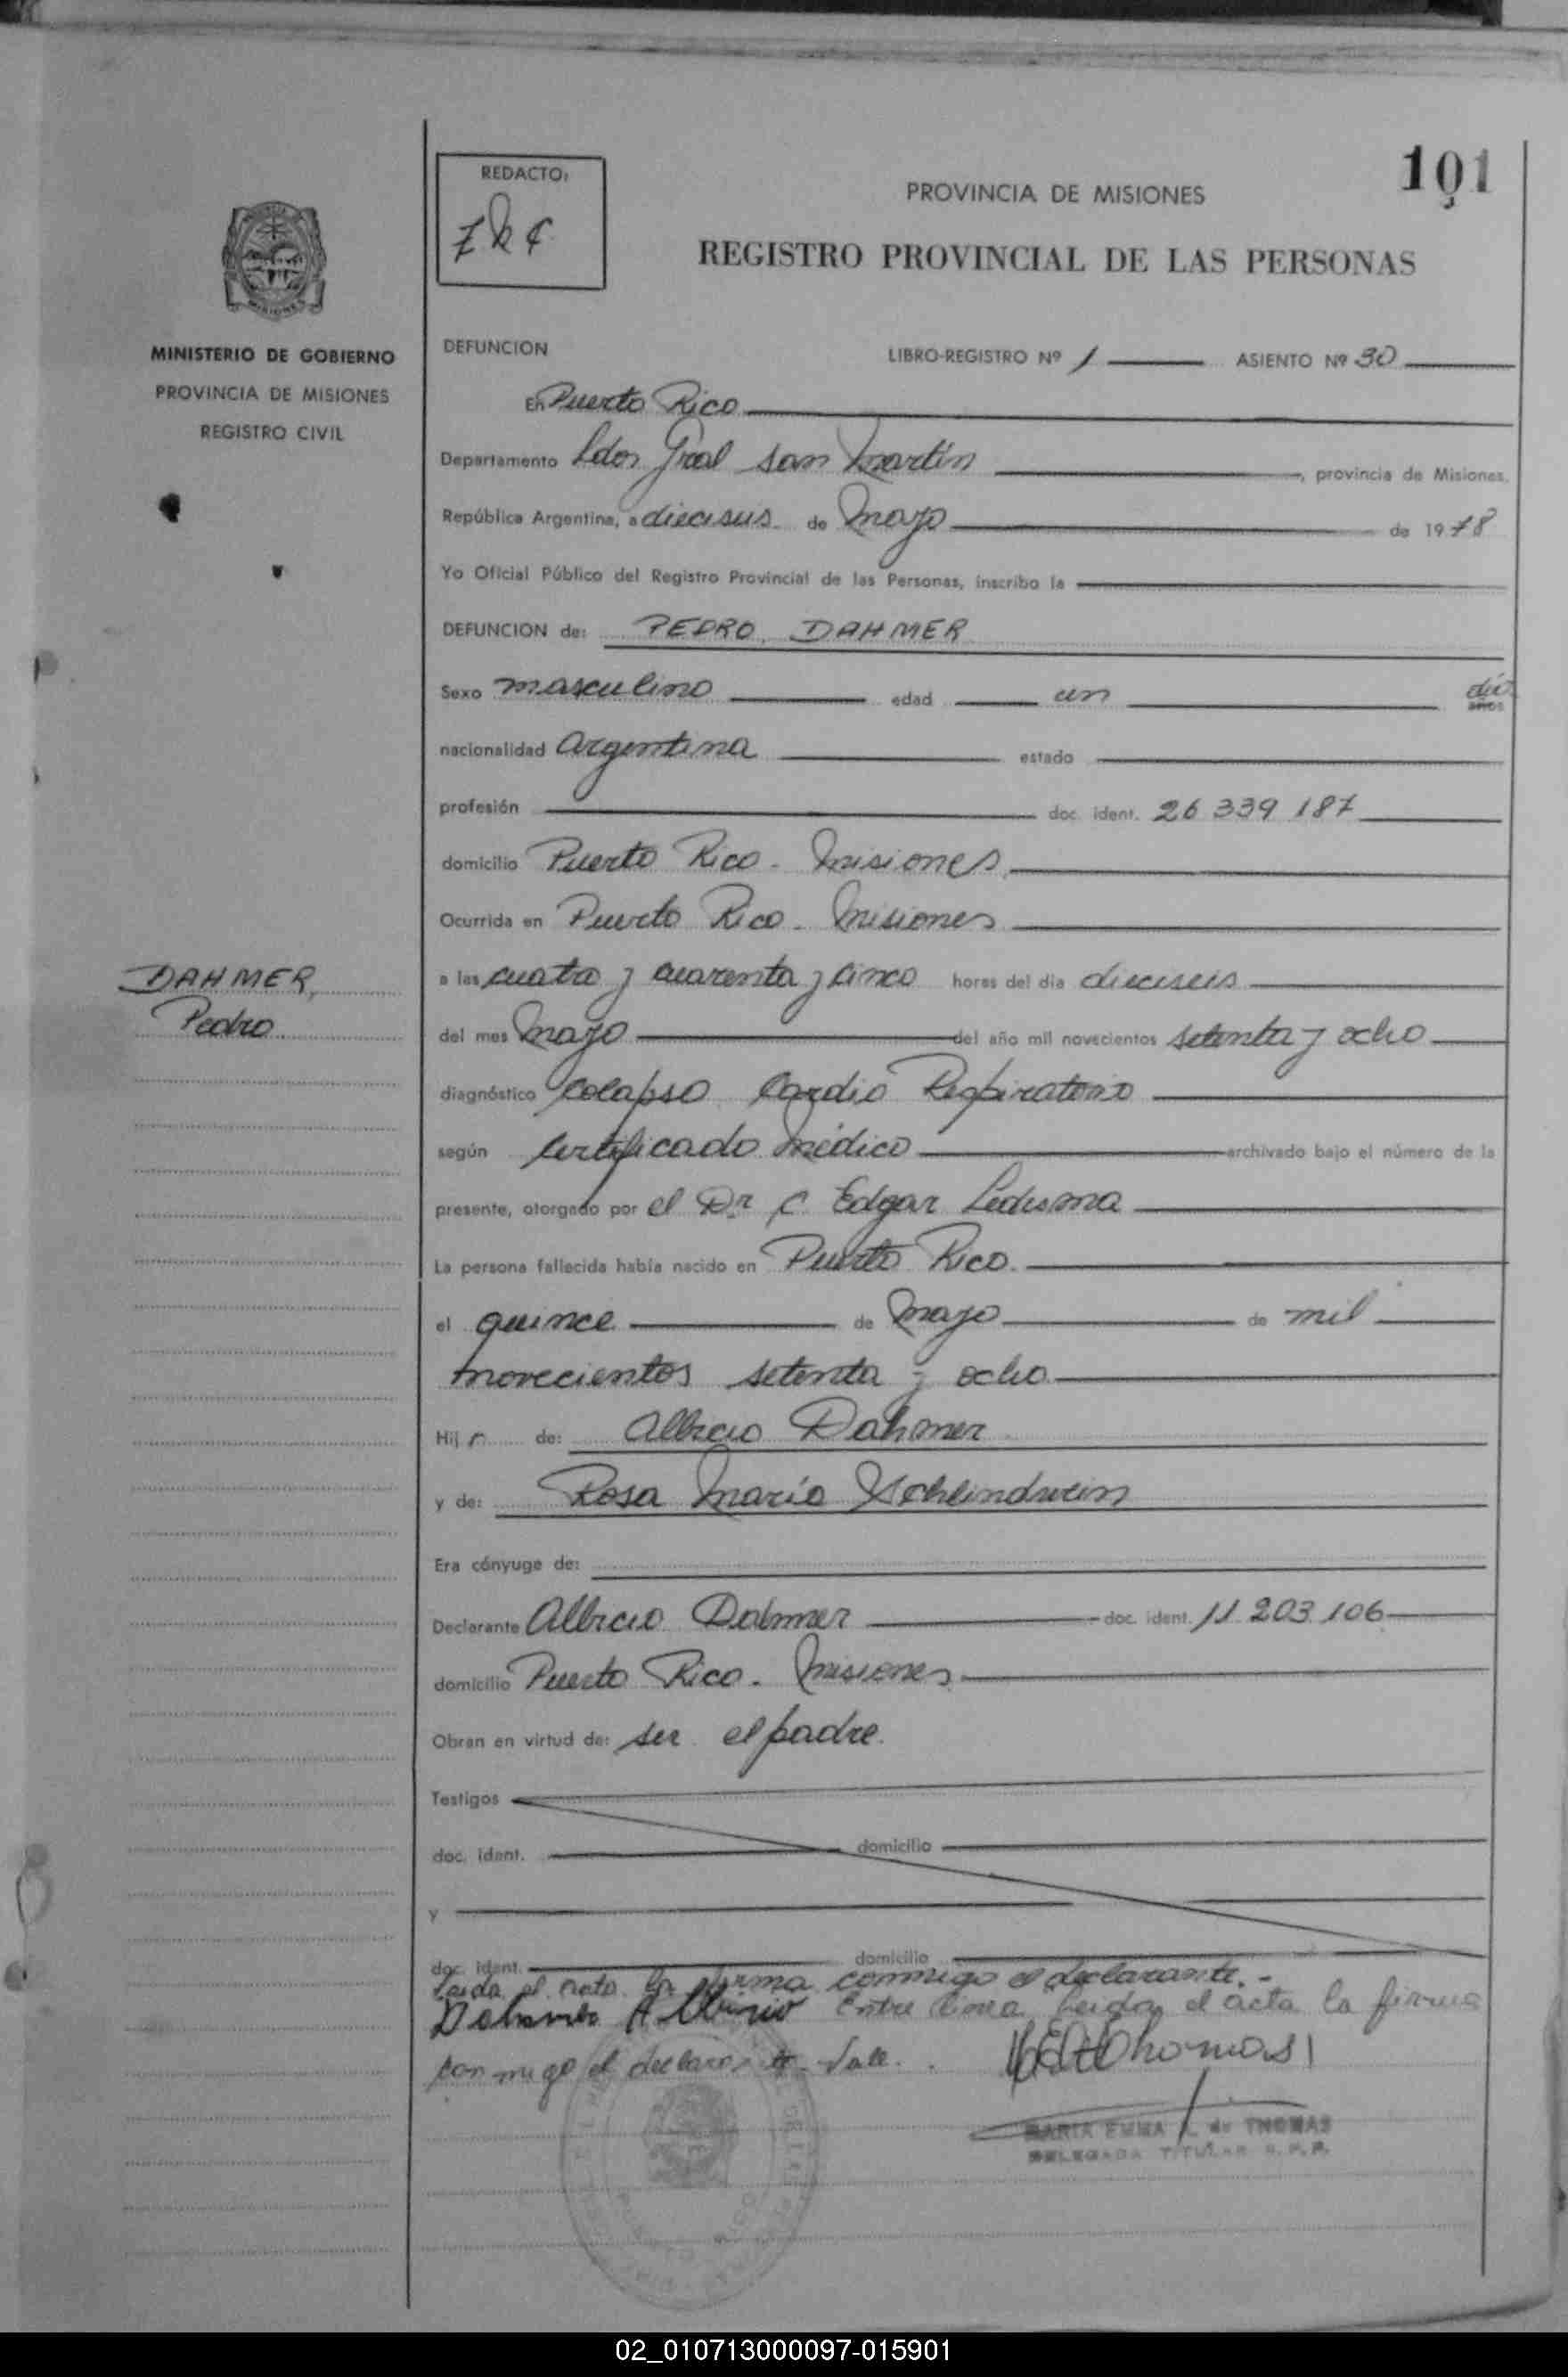 101
REDACTO:
PROVINCIA DE MISIONES
REGISTRO PROVINCIAL DE LAS PERSONAS
MINISTERIO DE GOBIERNO
PROVINCIA DE MISIONES
REGISTRO CIVIL
DEFUNCION LIBRO-REGISTRO Nº 1 ASIENTO Nº 30
En Puerto Rico
Departamento Ldor Gral San Martín, provincia de Misiones,
República Argentina, a dieciseis de Mayo de 1978
Yo Oficial Público del Registro Provincial de las Personas, inscribo la
DEFUNCION de: PEDRO DAHMER
Sexo masculino edad un día años
nacionalidad Argentina estado
profesión doc. ident. 26 339 187
domicilio Puerto Rico - Misiones
Ocurrida en Puerto Rico - Misiones
DAHMER,
Pedro
a las cuatro y cuarenta y cinco horas del dia dieciseis
del mes Mayo del año mil novecientos setenta y ocho
diagnóstico Colapso Cardio Respiratorio
según Certificado Médico archivado bajo el número de la
presente, otorgado por el Dr C. Edgar Ledesma
La persona fallecida había nacido en Puerto Rico.
el quince de Mayo de mil
novecientos setenta y ocho
Hij o de: Albicio Dahmer
y de: Rosa María Schlindwein
Era cónyuge de:
Declarante Albicio Dahmer doc. ident. 11 203 106
domicilio Puerto Rico - Misiones
Obran en virtud de: ser el padre.
Testigos
doc. ident. domicilio
y
doc. ident. domicilio
Leida el acta la firma conmigo el declarante.-
Entre linea Leida el acta la firma
conmigo el declarante - Vale.
MARIA EMMA L. de THOMAS
DELEGADA TITULAR R.P.P.
02_010713000097-015901